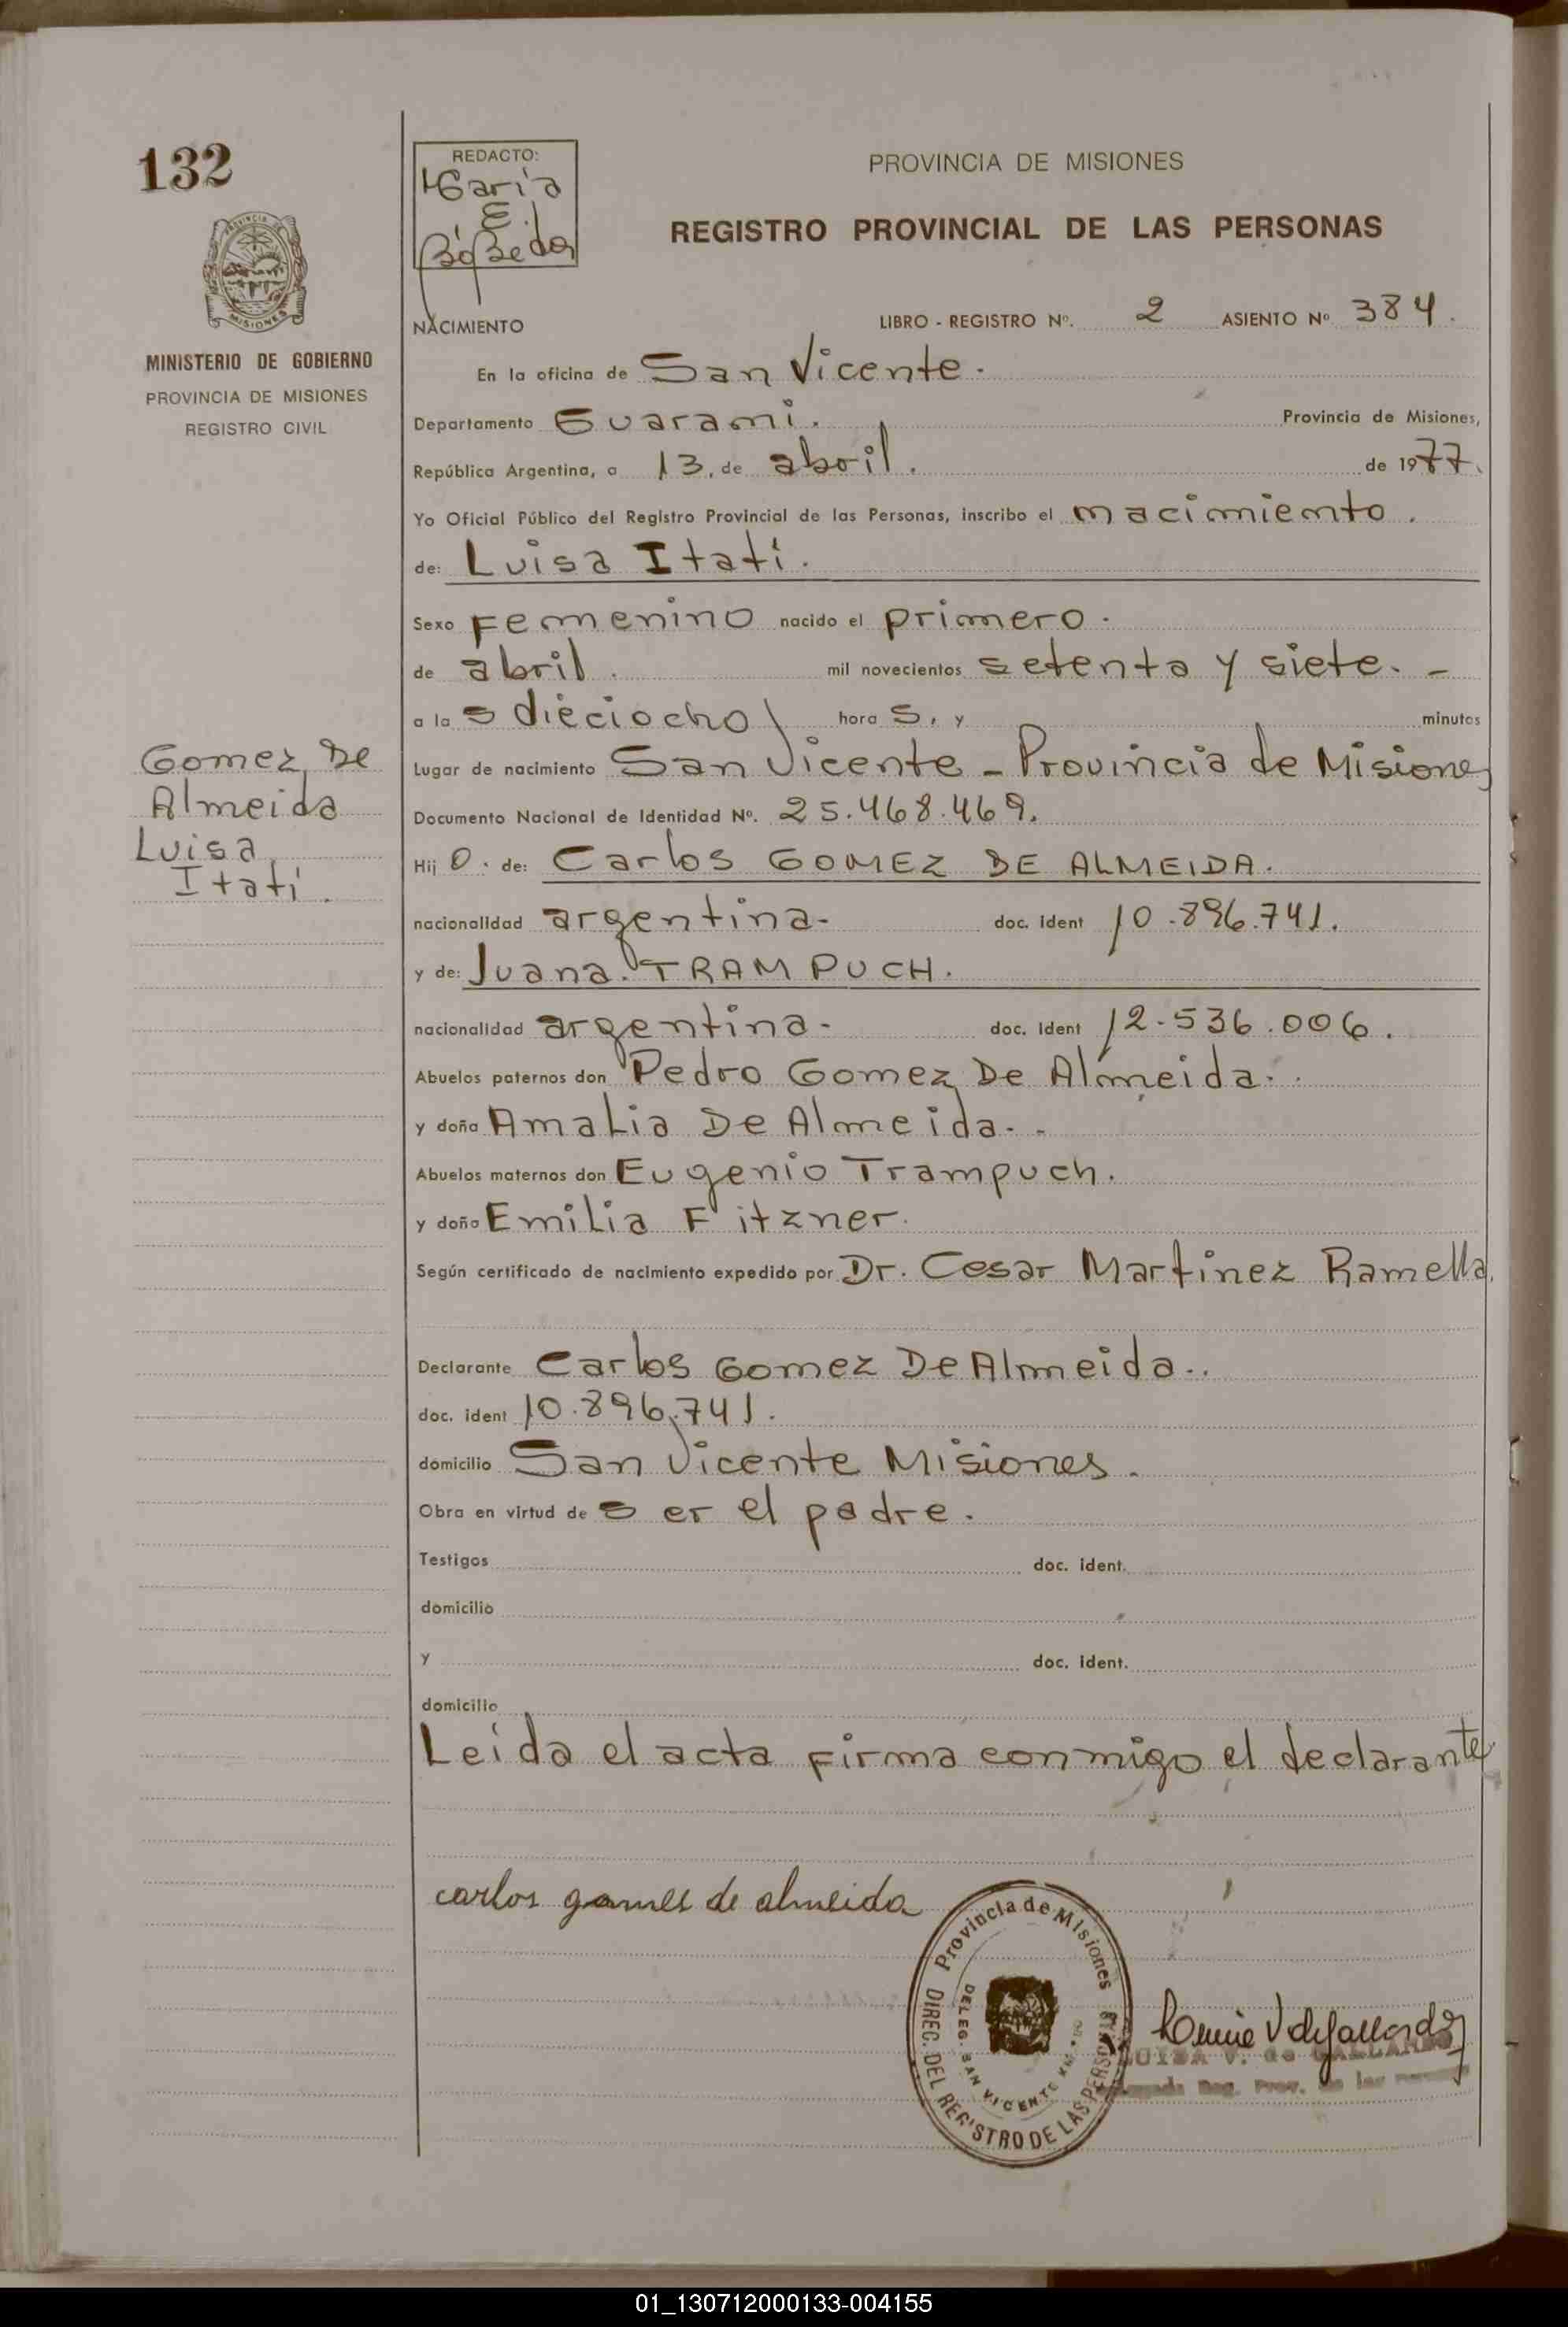 132
REDACTO:
Maria
E.
PROVINCIA DE MISIONES
REGISTRO PROVINCIAL DE LAS PERSONAS
MISIONES
MINISTERIO DE GOBIERNO
PROVINCIA DE MISIONES
REGISTRO CIVIL
NACIMIENTO LIBRO - REGISTRO Nº. 2 ASIENTO Nº 384.
En la oficina de San Vicente.
Departamento Guarani. Provincia de Misiones,
República Argentina, a 13. de abril. de 1977.
Yo Oficial Público del Registro Provincial de las Personas, inscribo el nacimiento.
de: Luisa Itatí.
Sexo Femenino nacido el primero.
de abril. mil novecientos setenta y siete. -
a la s dieciocho hora s. y minutos
Lugar de nacimiento San Vicente - Provincia de Misiones
Documento Nacional de Identidad Nº. 25.468.469.
Gomez De
Almeida
Luisa
Itatí.
Hij o. de: Carlos GOMEZ DE ALMEIDA.
nacionalidad argentina- doc. ident 10.896.741.
y de: Juana. TRAMPUCH.
nacionalidad argentina- doc. ident 12.536.006.
Abuelos paternos don Pedro Gomez De Almeida.
y doña Amalia De Almeida.-
Abuelos maternos don Eugenio Trampuch.
y doña Emilia Fitzner.
Según certificado de nacimiento expedido por Dr. Cesar Martinez Ramella.
Declarante Carlos Gomez De Almeida..
doc. ident 10.896.741.
domicilio San Vicente Misiones.
Obra en virtud de ser el padre.
Testigos doc. ident.
domicilio
y doc. ident.
domicilio
Leída el acta firma conmigo el declarante
carlos gomes de almeida
Provincia de Misiones
DIREC. DEL REGISTRO DE LAS PERSONAS
DELEG. SAN VICENTE
LUISA V. de GALLARDO
Reg. Prov. de las
01_130712000133-004155